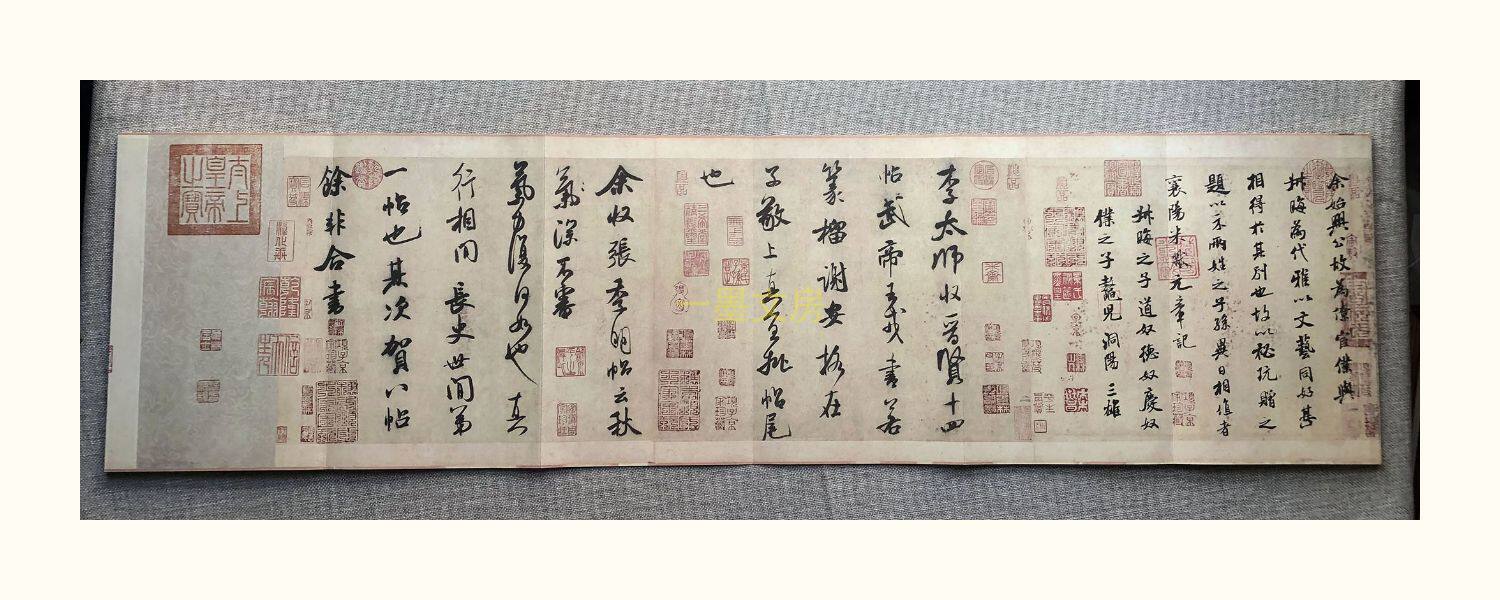 余始興公故為僚宦僕與
叔晦為代雅以文藝同好甚
相得於其別也故以秘玩贈之
題以示兩姓之子孫異日相值者
襄陽米黻元章記
叔晦之子道奴德奴慶奴
僕之子鼇兒洞陽三雄
李太師收晉賢十四
帖武帝王戎書若
篆籀謝安格在
子敬上真宜批帖尾
也
余收張季明帖云秋
氣深不審
氣力復何如也真
行相間長史世間第
一帖也其次賀八帖
餘非合書
太上皇帝之寶
一墨文房